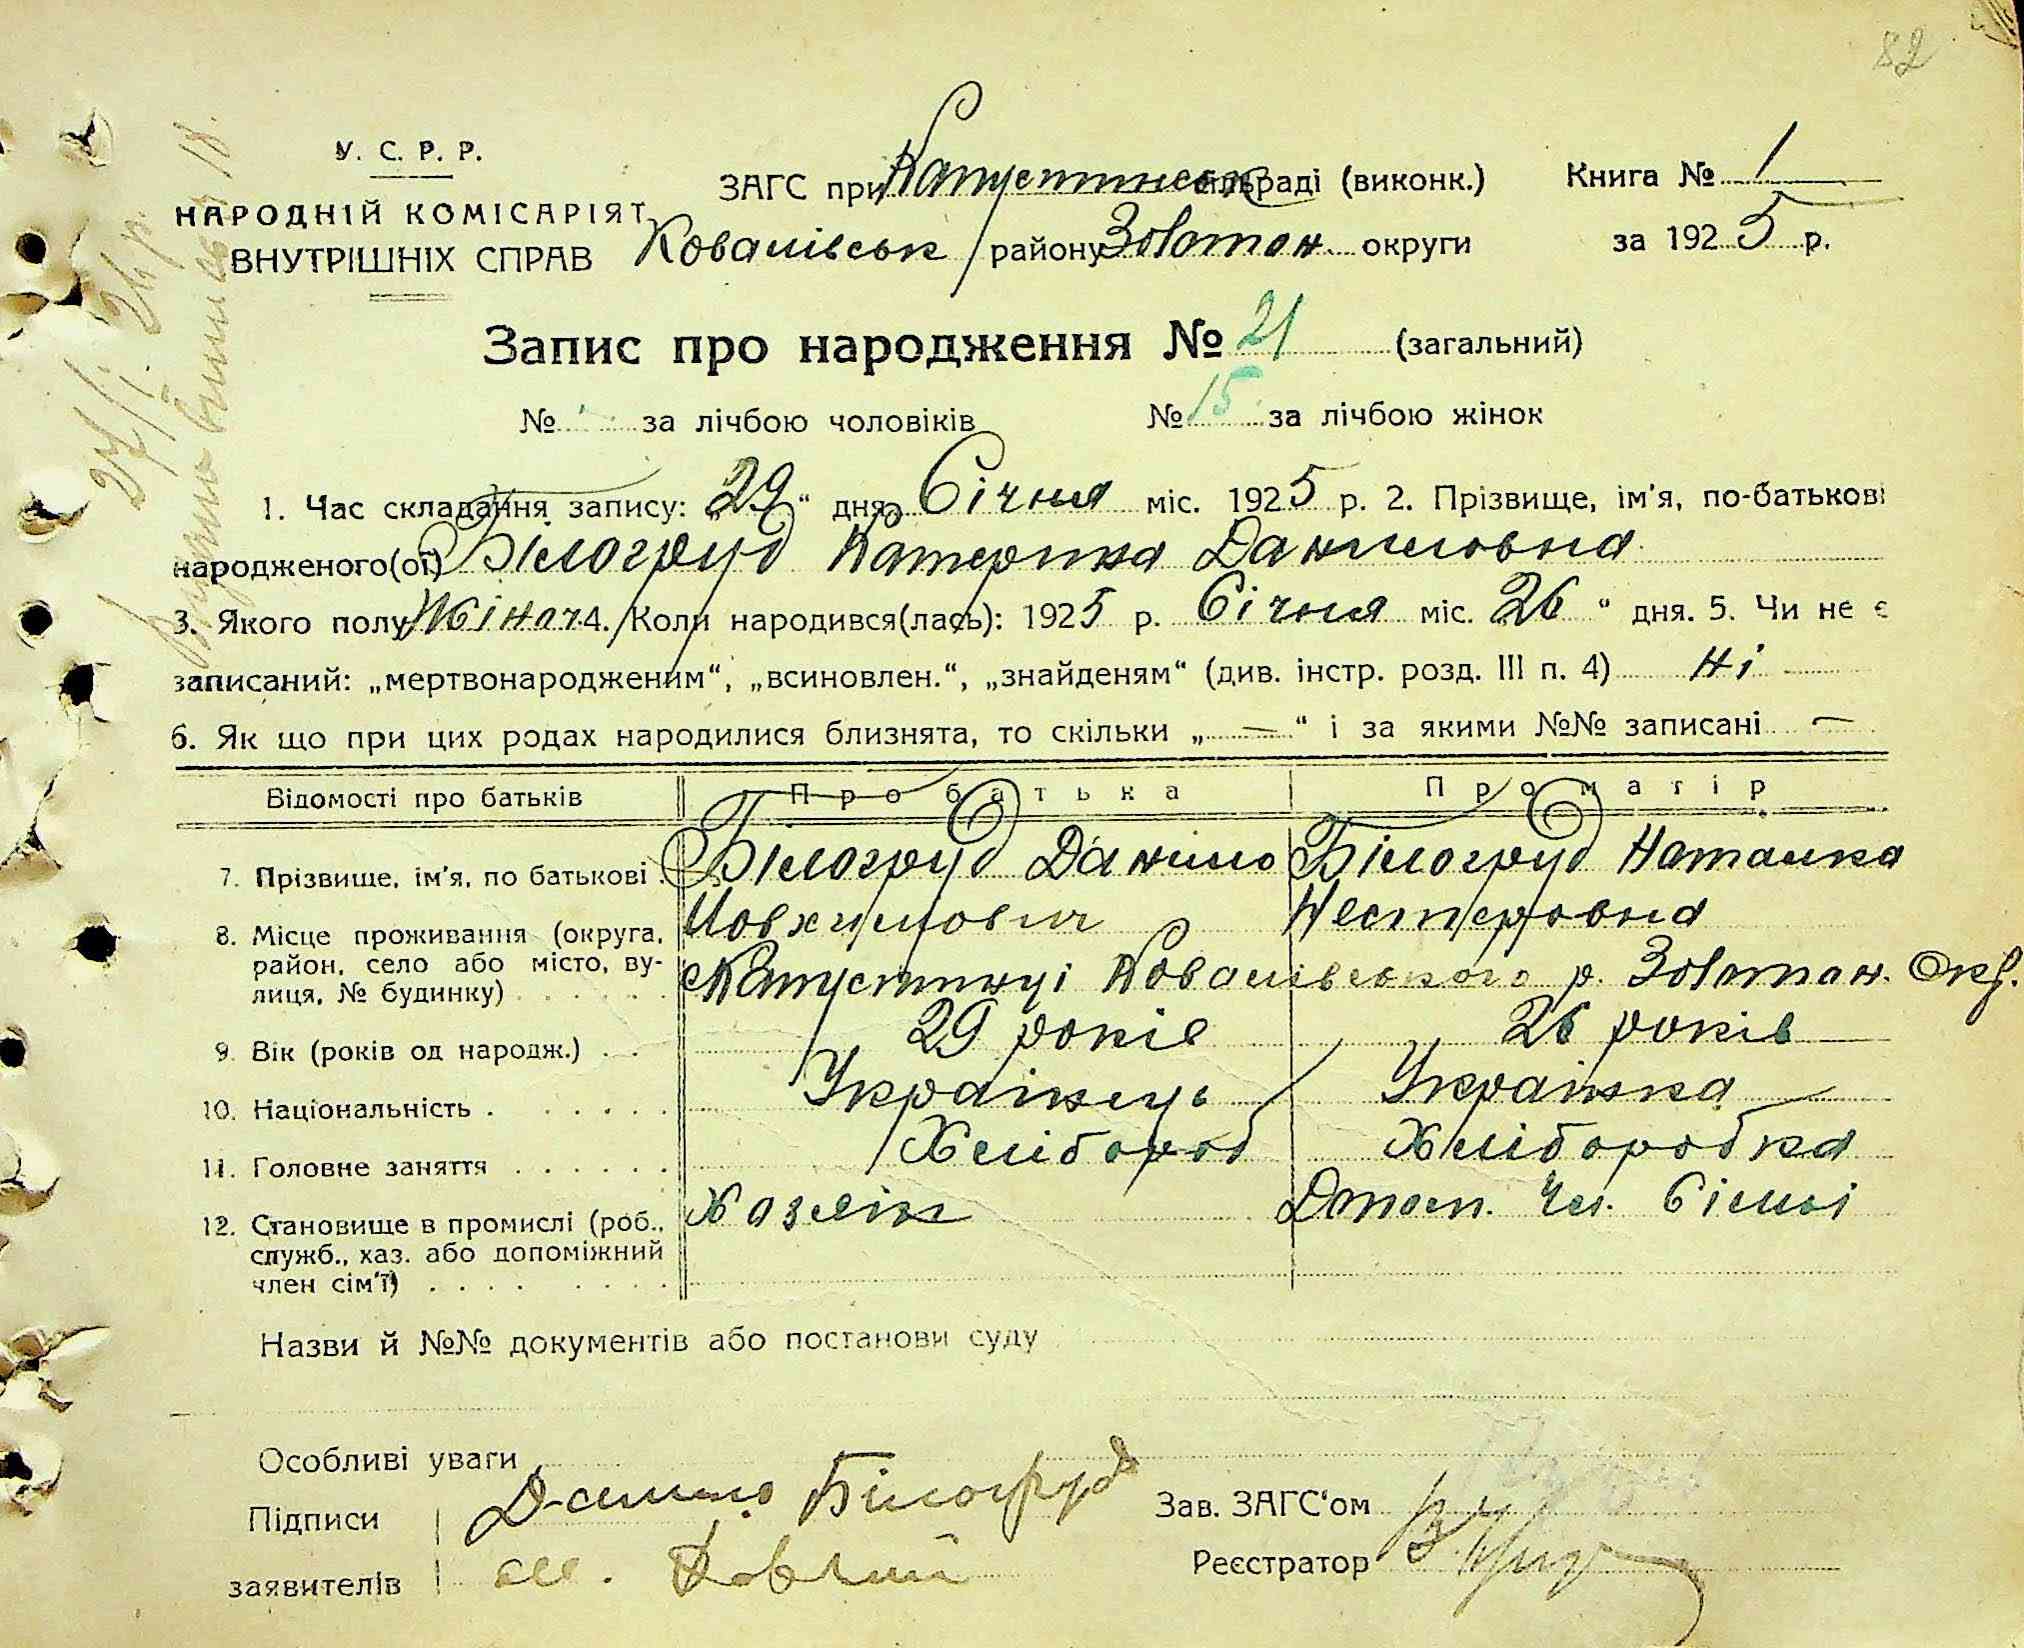 82
У. С. Р. Р.
НАРОДНІЙ КОМІСАРІЯТ
ВНУТРІШНІХ СПРАВ
ЗАГС при Капустинськ сільраді (виконк.)
Ковалівськ району Золотон. округи
Книга № 1
за 1925 р.
Запис про народження № 21 (загальний)
№ за лічбою чоловіків № 15 за лічбою жінок
1. Час складання запису: „29“ дня Січня міс. 1925 р. 2. Прізвище, ім'я, по-батькові
народженого(ої) Білогруд Катерина Даниловна
3. Якого полу Жіноч. 4. Коли народився(лась): 1925 р. Січня міс. 26 “ дня. 5. Чи не є
записаний: „мертвонародженим“, „всиновлен.“, „знайденям“ (див. інстр. розд. III п. 4) Ні
6. Як що при цих родах народилися близнята, то скільки „ — “ і за якими №№ записані —
Відомості про батьків Про батька Про матір
7. Прізвище, ім'я, по батькові . Білогруд Данило Білогруд Наталка
Йовхимович Нестеровна
8. Місце проживання (округа,
район, село або місто, ву-
лиця, № будинку) . . . . . . Капустинці Ковалівського р. Золотон. Окр.
9. Вік (років од народж.) . . 29 років 26 років
10. Національність . . . . . . Українець Українка
11. Головне заняття . . . . . . Хлібороб Хлібороба
12. Становище в промислі (роб., Хазяін Допом. Чл. Сімьі
служб., хаз. або допоміжний
член сім'ї) . . . . . . . .
Назви й №№ документів або постанови суду
Особливі уваги
Підписи Данило Білогруд
заявителів
Зав. ЗАГС'ом
Реєстратор